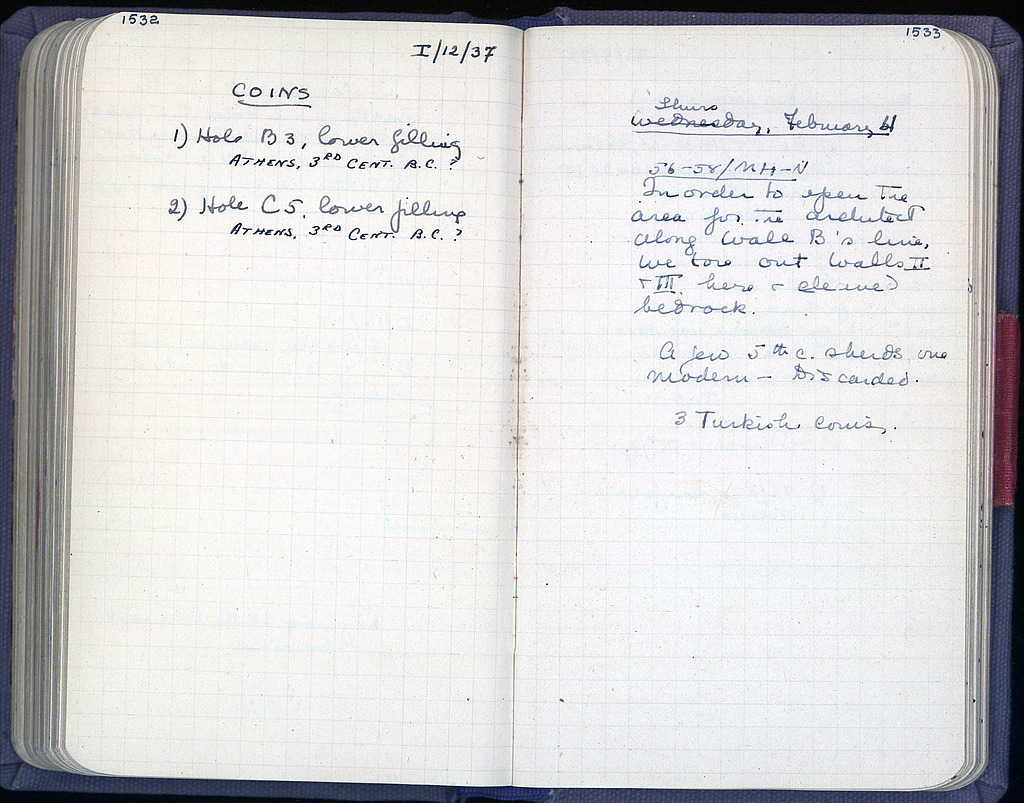 1532
I/12/37
COINS
1) Hole B3, lower filling
ATHENS, 3RD CENT. B.C. ?
2) Hole C5, lower filling
ATHENS, 3RD CENT. B.C. ?
1533
Thurs
Wednesday, February 4
56-58/MH-N
In order to open the
area for the architect
along Wall B's line,
we tore out Walls II
+ III here + cleaned
bedrock.
A few 5th c. sherds, one
modern — Discarded.
3 Turkish coins.